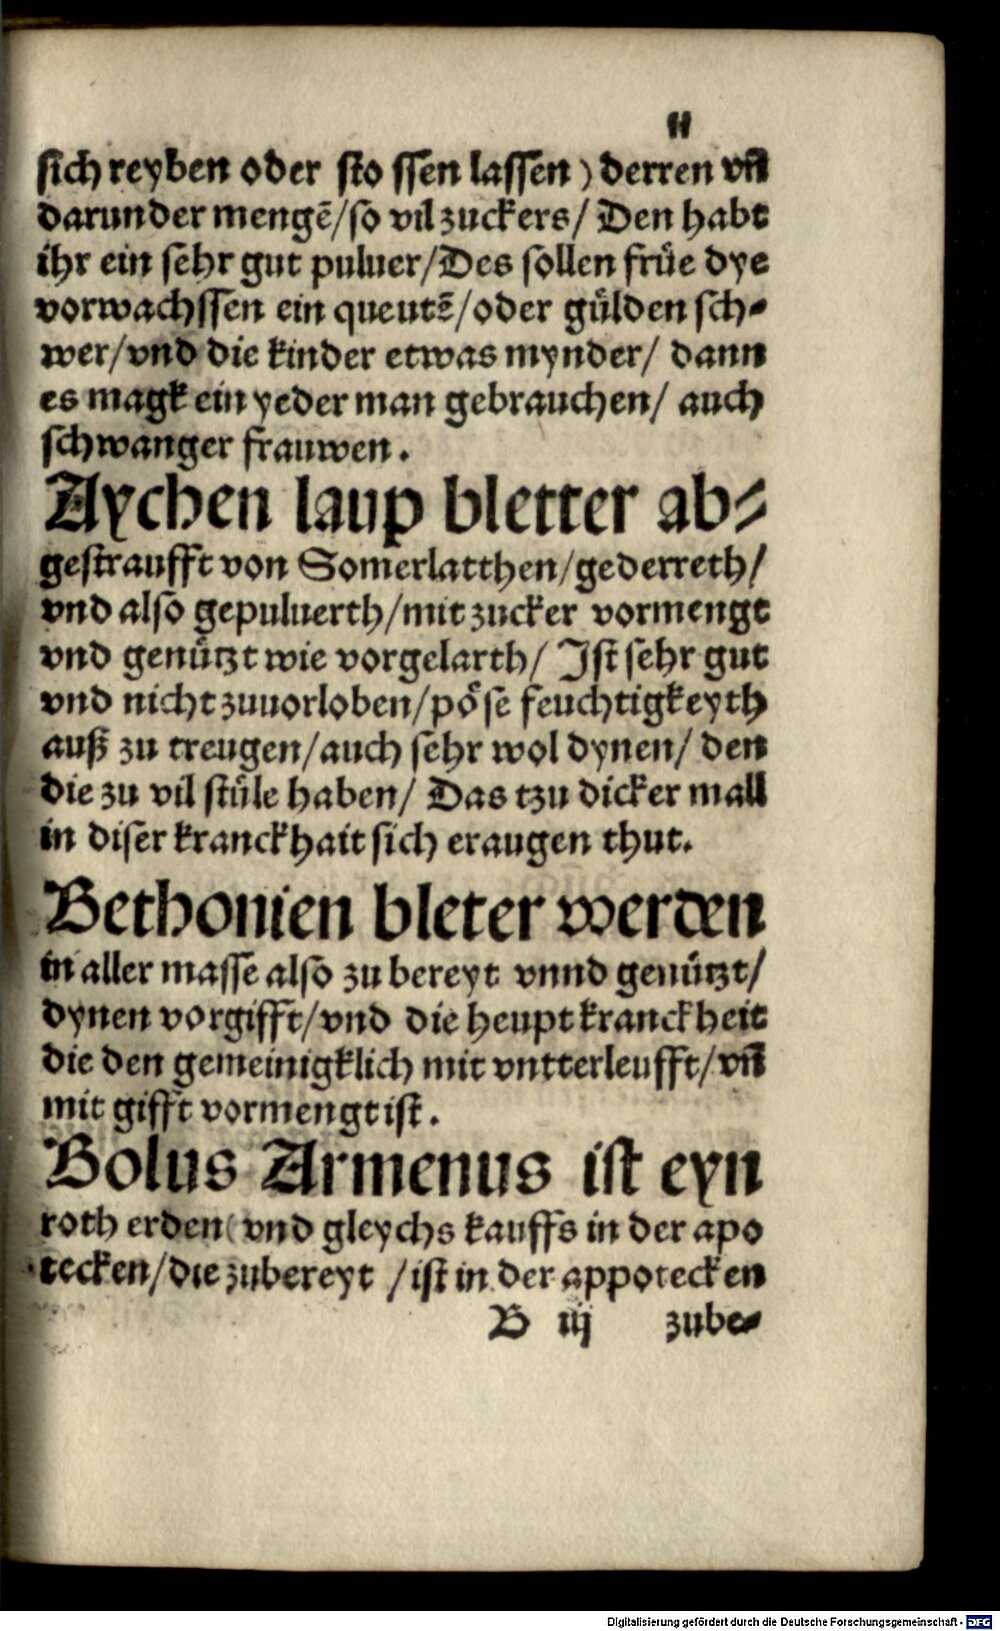 11
sich reyben oder sto ssen lassen) derren vñ
darunder mengē/so vil zuckers/ Den habt
ihr ein sehr gut puluer/Des sollen früe dye
vorwachssen ein queutē/oder gülden sch-
wer/vnd die kinder etwas mynder/ dann
es magk ein yeder man gebrauchen/ auch
schwanger frauwen.
Aychen laup bletter ab-
gestraufft von Somerlatthen/gederreth/
vnd also gepuluerth/mit zucker vormengt
vnd genützt wie vorgelarth/ Ist sehr gut
vnd nicht zuuorloben/pöse feuchtigkeyth
auß zu treugen/auch sehr wol dynen/ den
die zu vil stüle haben/ Das tzu dicker mall
in diser kranckhait sich eraugen thut.
Bethonien bleter werden
in aller masse also zu bereyt vnnd genützt/
dynen vorgifft/vnd die heupt kranckheit
die den gemeinigklich mit vntterleufft/vñ
mit gifft vormengt ist.
Bolus Armenus ist eyn
roth erden( vnd gleychs kauffs in der apo
tecken/die zubereyt /ist in der appotecken
B iij zube-
Digitalisierung gefördert durch die Deutsche Forschungsgemeinschaft - DFG